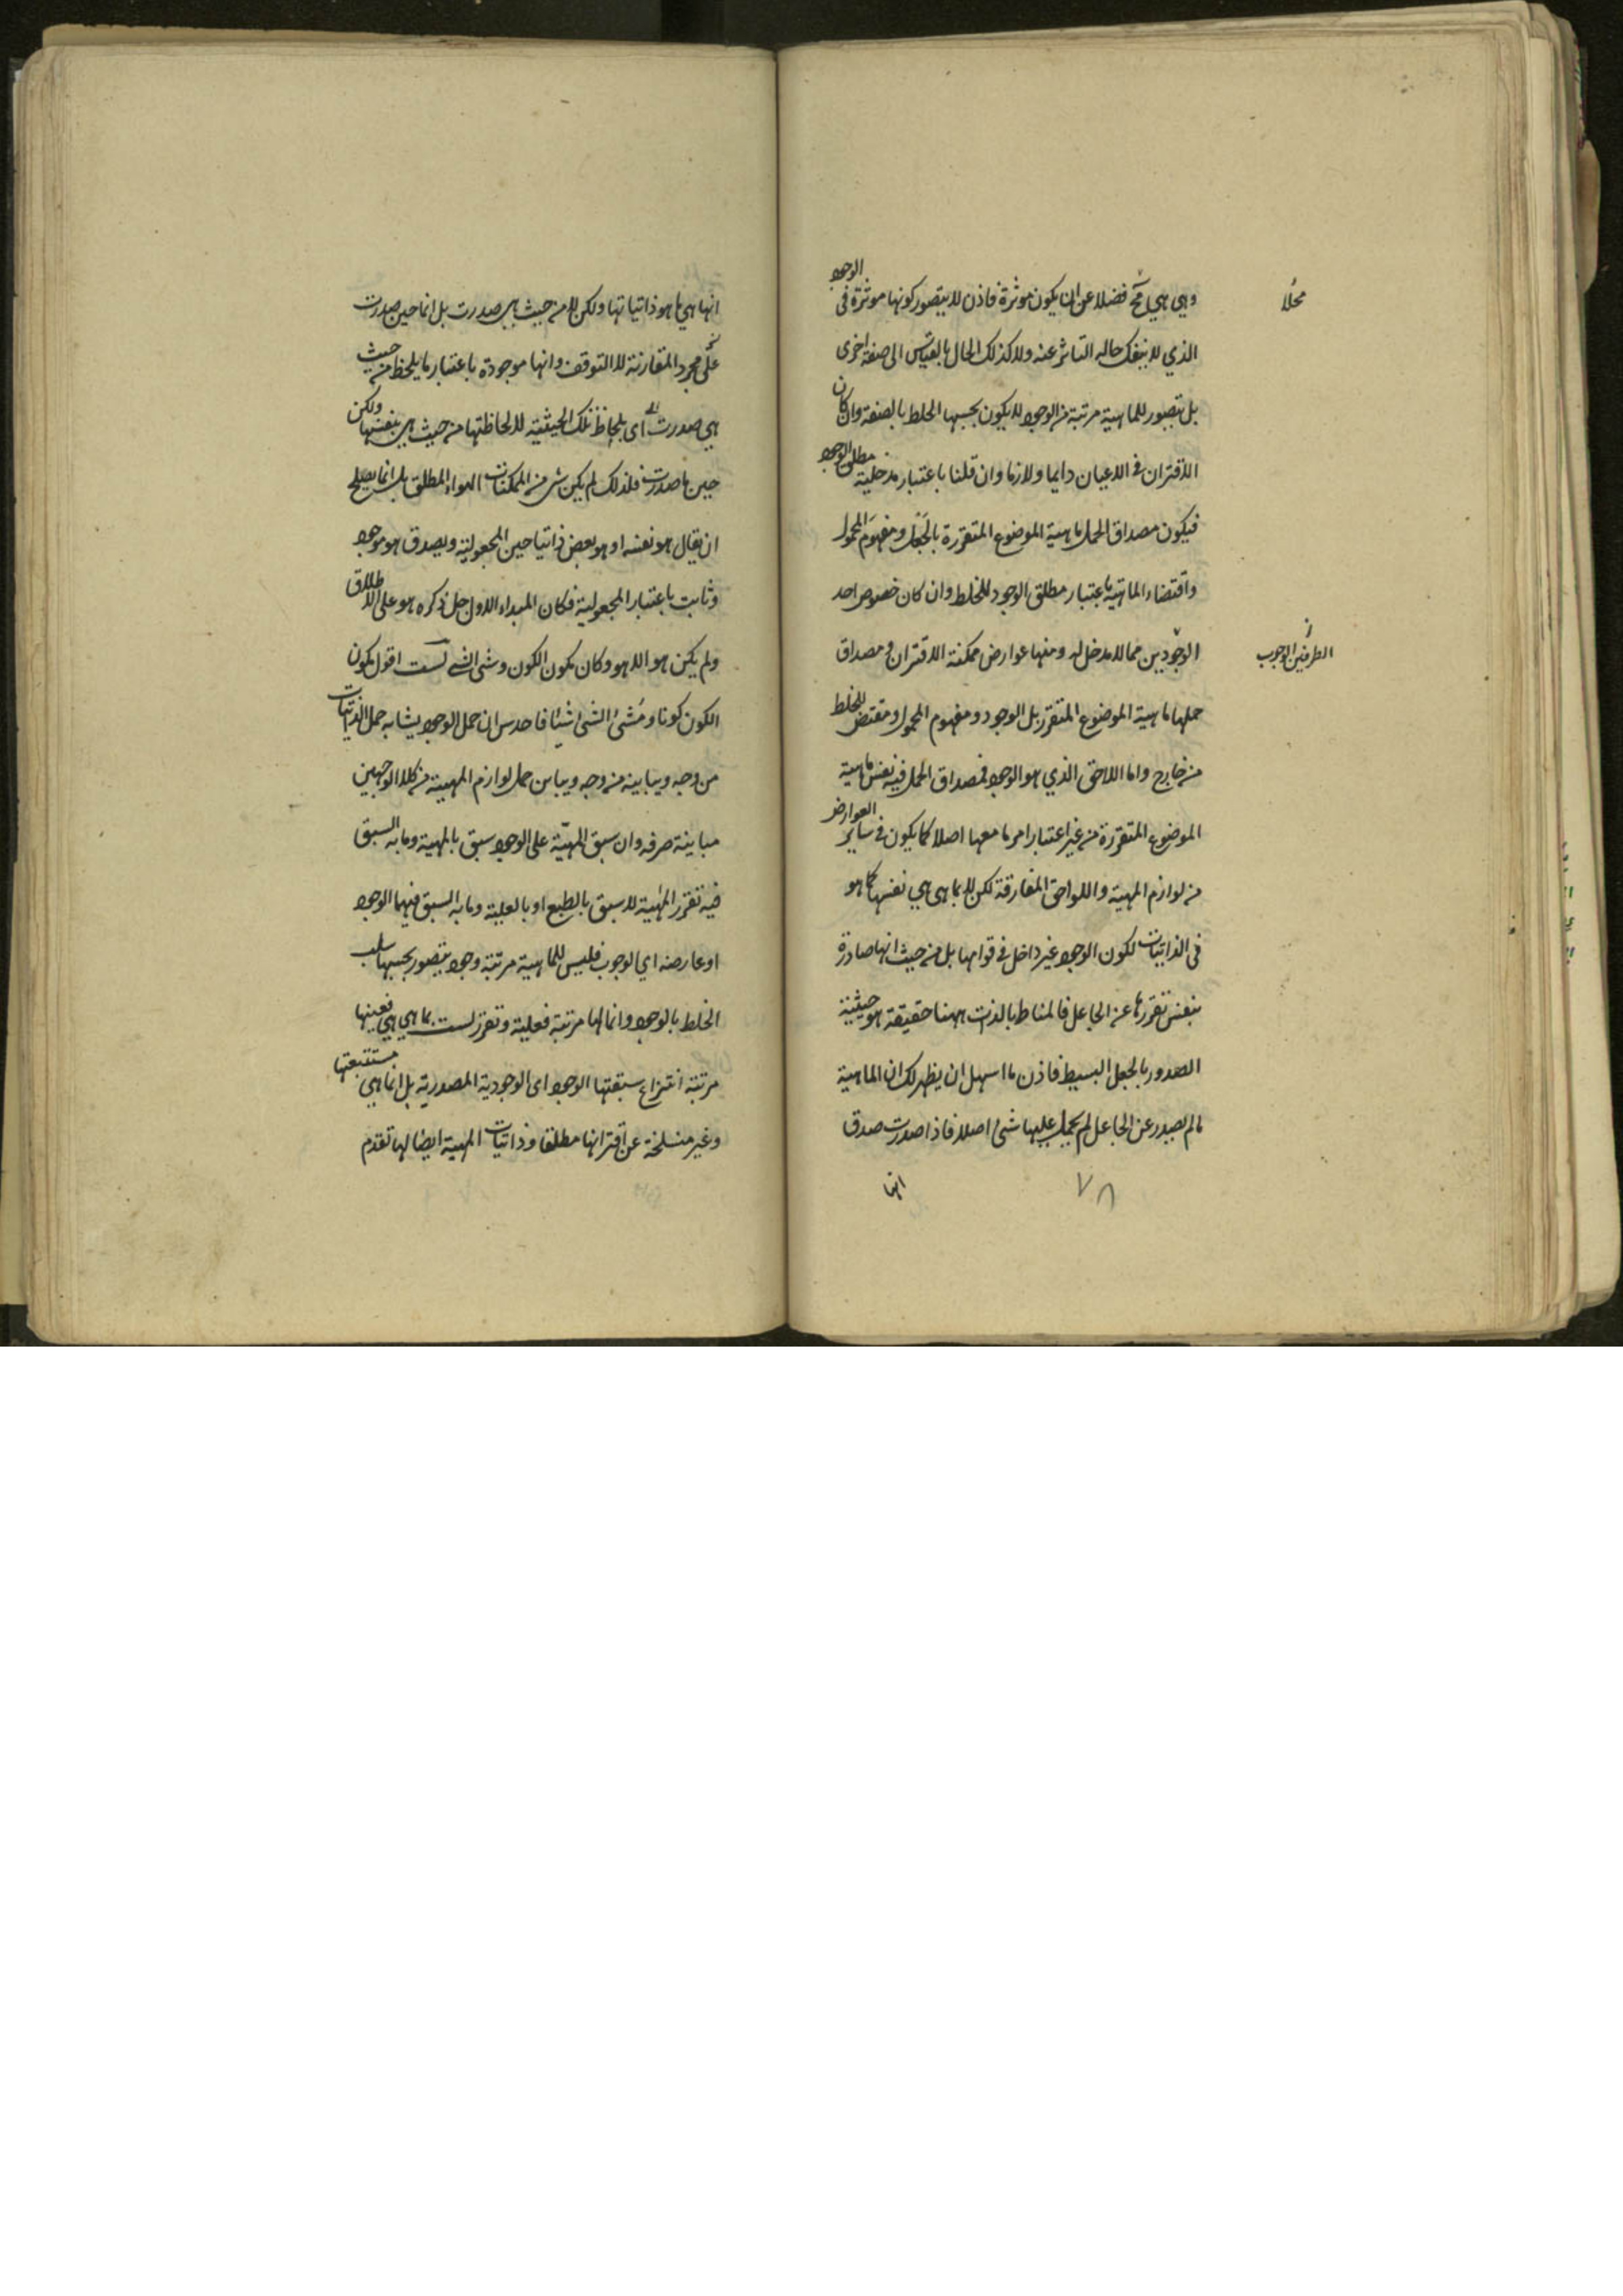 وهي هي مح فضلا عن ان يكون موثرة فاذن لا يتصور كونها موثرة فى الوجود
محلا
الذي لا ينفك حاله التاثر عنه ولا كذلك الحال بالقياس الى صفة اخرى
بل تصور للماهية مرتبة من الوجود لا يكون بحسبها الخلط بالصفة وان كان
الاقتران فى الاعيان دايما ولازما وان قلنا باعتبار مدخلية مطلق الوجود
فيكون مصداق الحمل ماهية الموضوع المتقررة بالجعل ومفهوم المحمول
واقتضاء الماهية باعتبار مطلق الوجود للخلط وان كان خصوص احد
الوجودين مما لا مدخل له ومنها عوارض ممكنة الاقتران و مصداق
الطرفين الوجوب
حملها ماهية الموضوع المتقرر بل الوجود ومفهوم المحمول ومقتض للخلط
من خارج واما اللاحق الذي هو الوجود فمصداق الحمل فيه نفس ماهية
الموضوع المتقررة من غير اعتبار امر ما معها اصلا كما يكون فى ساير العوارض
من لوازم المهية واللواحق المفارقة لكن لا بما هى هي نفسها كما هو
فى الذاتيات لكون الوجود غير داخل فى قوامها بل من حيث انها صادرة
بنفس تقررها عن الجاعل فالمناط بالذات ههنا حقيقة هو حيثية
الصدور بالجعل البسيط فاذن ما اسهل ان يظهر لك ان الماهية
ما لم يصدر عن الجاعل لم يحمل عليها شئ اصلا فاذا صدرت صدق
انها
٧٨
انها هي ما هو ذاتياتها ولكن لا من حيث هى صدرت بل انما حين صدرت
على مجرد المقارنة لا التوقف وانها موجودة باعتبار ما يلحظ من حيث
هي صدرت اى بلحاظ تلك الحيثية لا لحاظتها من حيث هى بنفسها ولكن
حين ما صدرت فلذلك لم يكن شئ من الممكنات الهواء المطلق بل انما يصلح
ان يقال هو نفسه او هو بعض ذاتيا حين المجعولية ويصدق هو موجود
وثابت باعتبار المجعولية فكان المبداء الاول جل ذكره هو على الاطلاق
ولم يكن هو الا هو وكان يكون الكون وشئ الشئ لست اقول يكون
الكون كونا ومشئ الشئ شيئا فاحدس ان حمل الوجود يشابه حمل الذاتيات
من وجه ويباينه من وجه ويباين حمل لوازم المهية من كلا الوجهين
مباينة صرفه وان سبق المهية على الوجود سبق بالمهية وما به السبق
فيه تقرر المهية لا سبق بالطبع او بالعلية وما به السبق فيهما الوجود
او عارضه اي الوجوب فليس للماهية مرتبة وجود يتصور بحسبها سلب
الخلط بالوجود وانما لها مرتبة فعلية وتقرر لست بما هي هي فعينها
مرتبة انتزاع سبقتها الوجود اى الوجودية المصدرية بل انما هي مستتبعتها
وغير منسلخة عن اقترانها مطلقا وذاتيات المهية ايضا لها تقدم